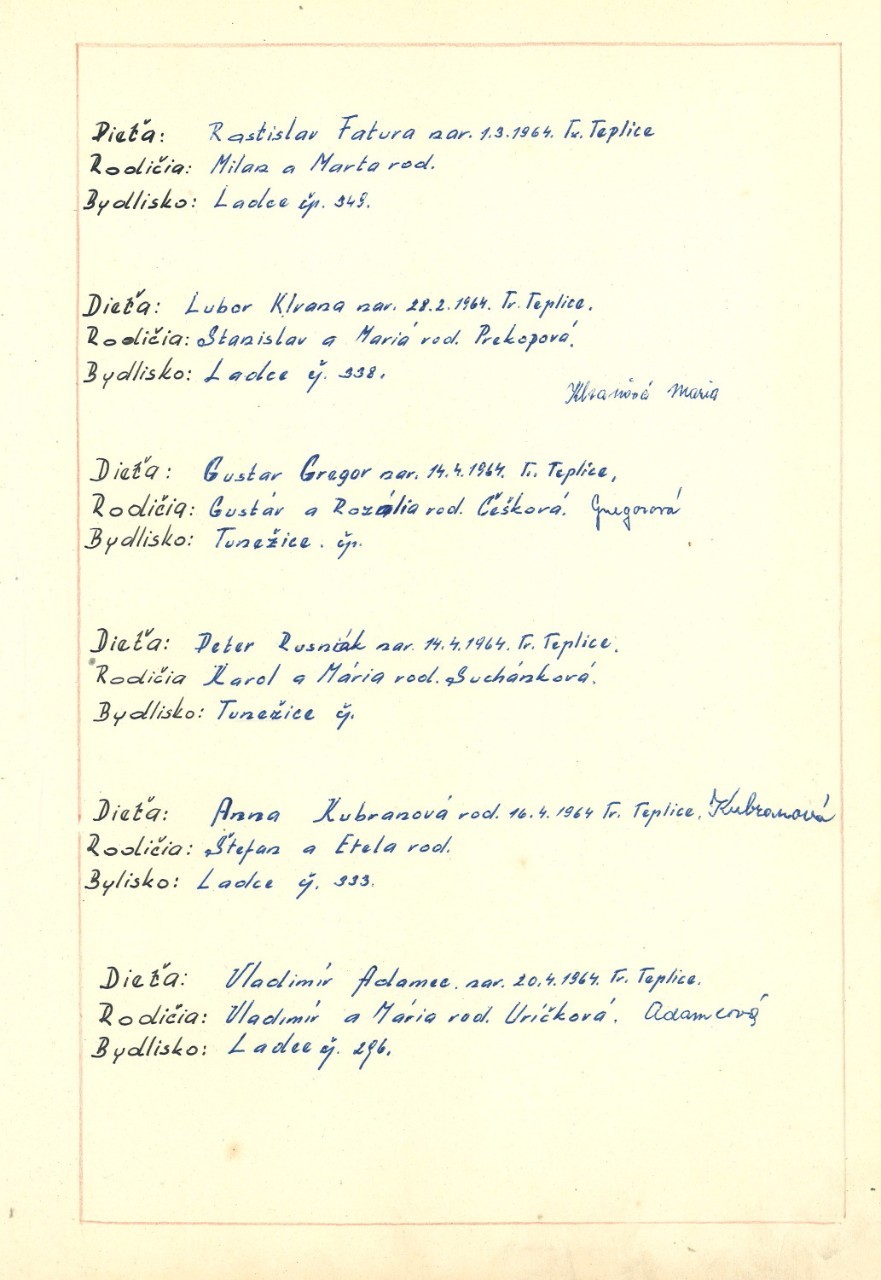 Dieťa: Rastislav Fatura nar. 1.3.1964. Tr. Teplice
Rodičia: Milan a Marta rod.
Bydlisko: Ladce čp. 349.
Dieťa: Lubor Klvana nar. 28.2.1964. Tr. Teplice.
Rodičia: Stanislav a Mariá rod. Prekopová.
Bydlisko: Ladce č. 338.
Klvaňová Maria
Dieťa: Gustav Gregor nar. 14.4.1964. Tr. Teplice,
Rodičia: Gustáv a Rozália rod. Češková. Gregorová
Bydlisko: Tunežice. čp.
Dieťa: Peter Rusniák nar. 14.4.1964. Tr. Teplice.
Rodičia Karol a Mária rod. Suchánková.
Bydlisko: Tunežice č.
Dieťa: Anna Kubranová rod. 16.4.1964 Tr. Teplice. Kubranová
Rodičia: Štefan a Etela rod.
Bylisko: Ladce č. 333.
Dieťa: Vladimír Adamec. nar. 20.4.1964. Tr. Teplice.
Rodičia: Vladimír a Mária rod. Uríčková. Adamcová
Bydlisko: Ladce č. 296.